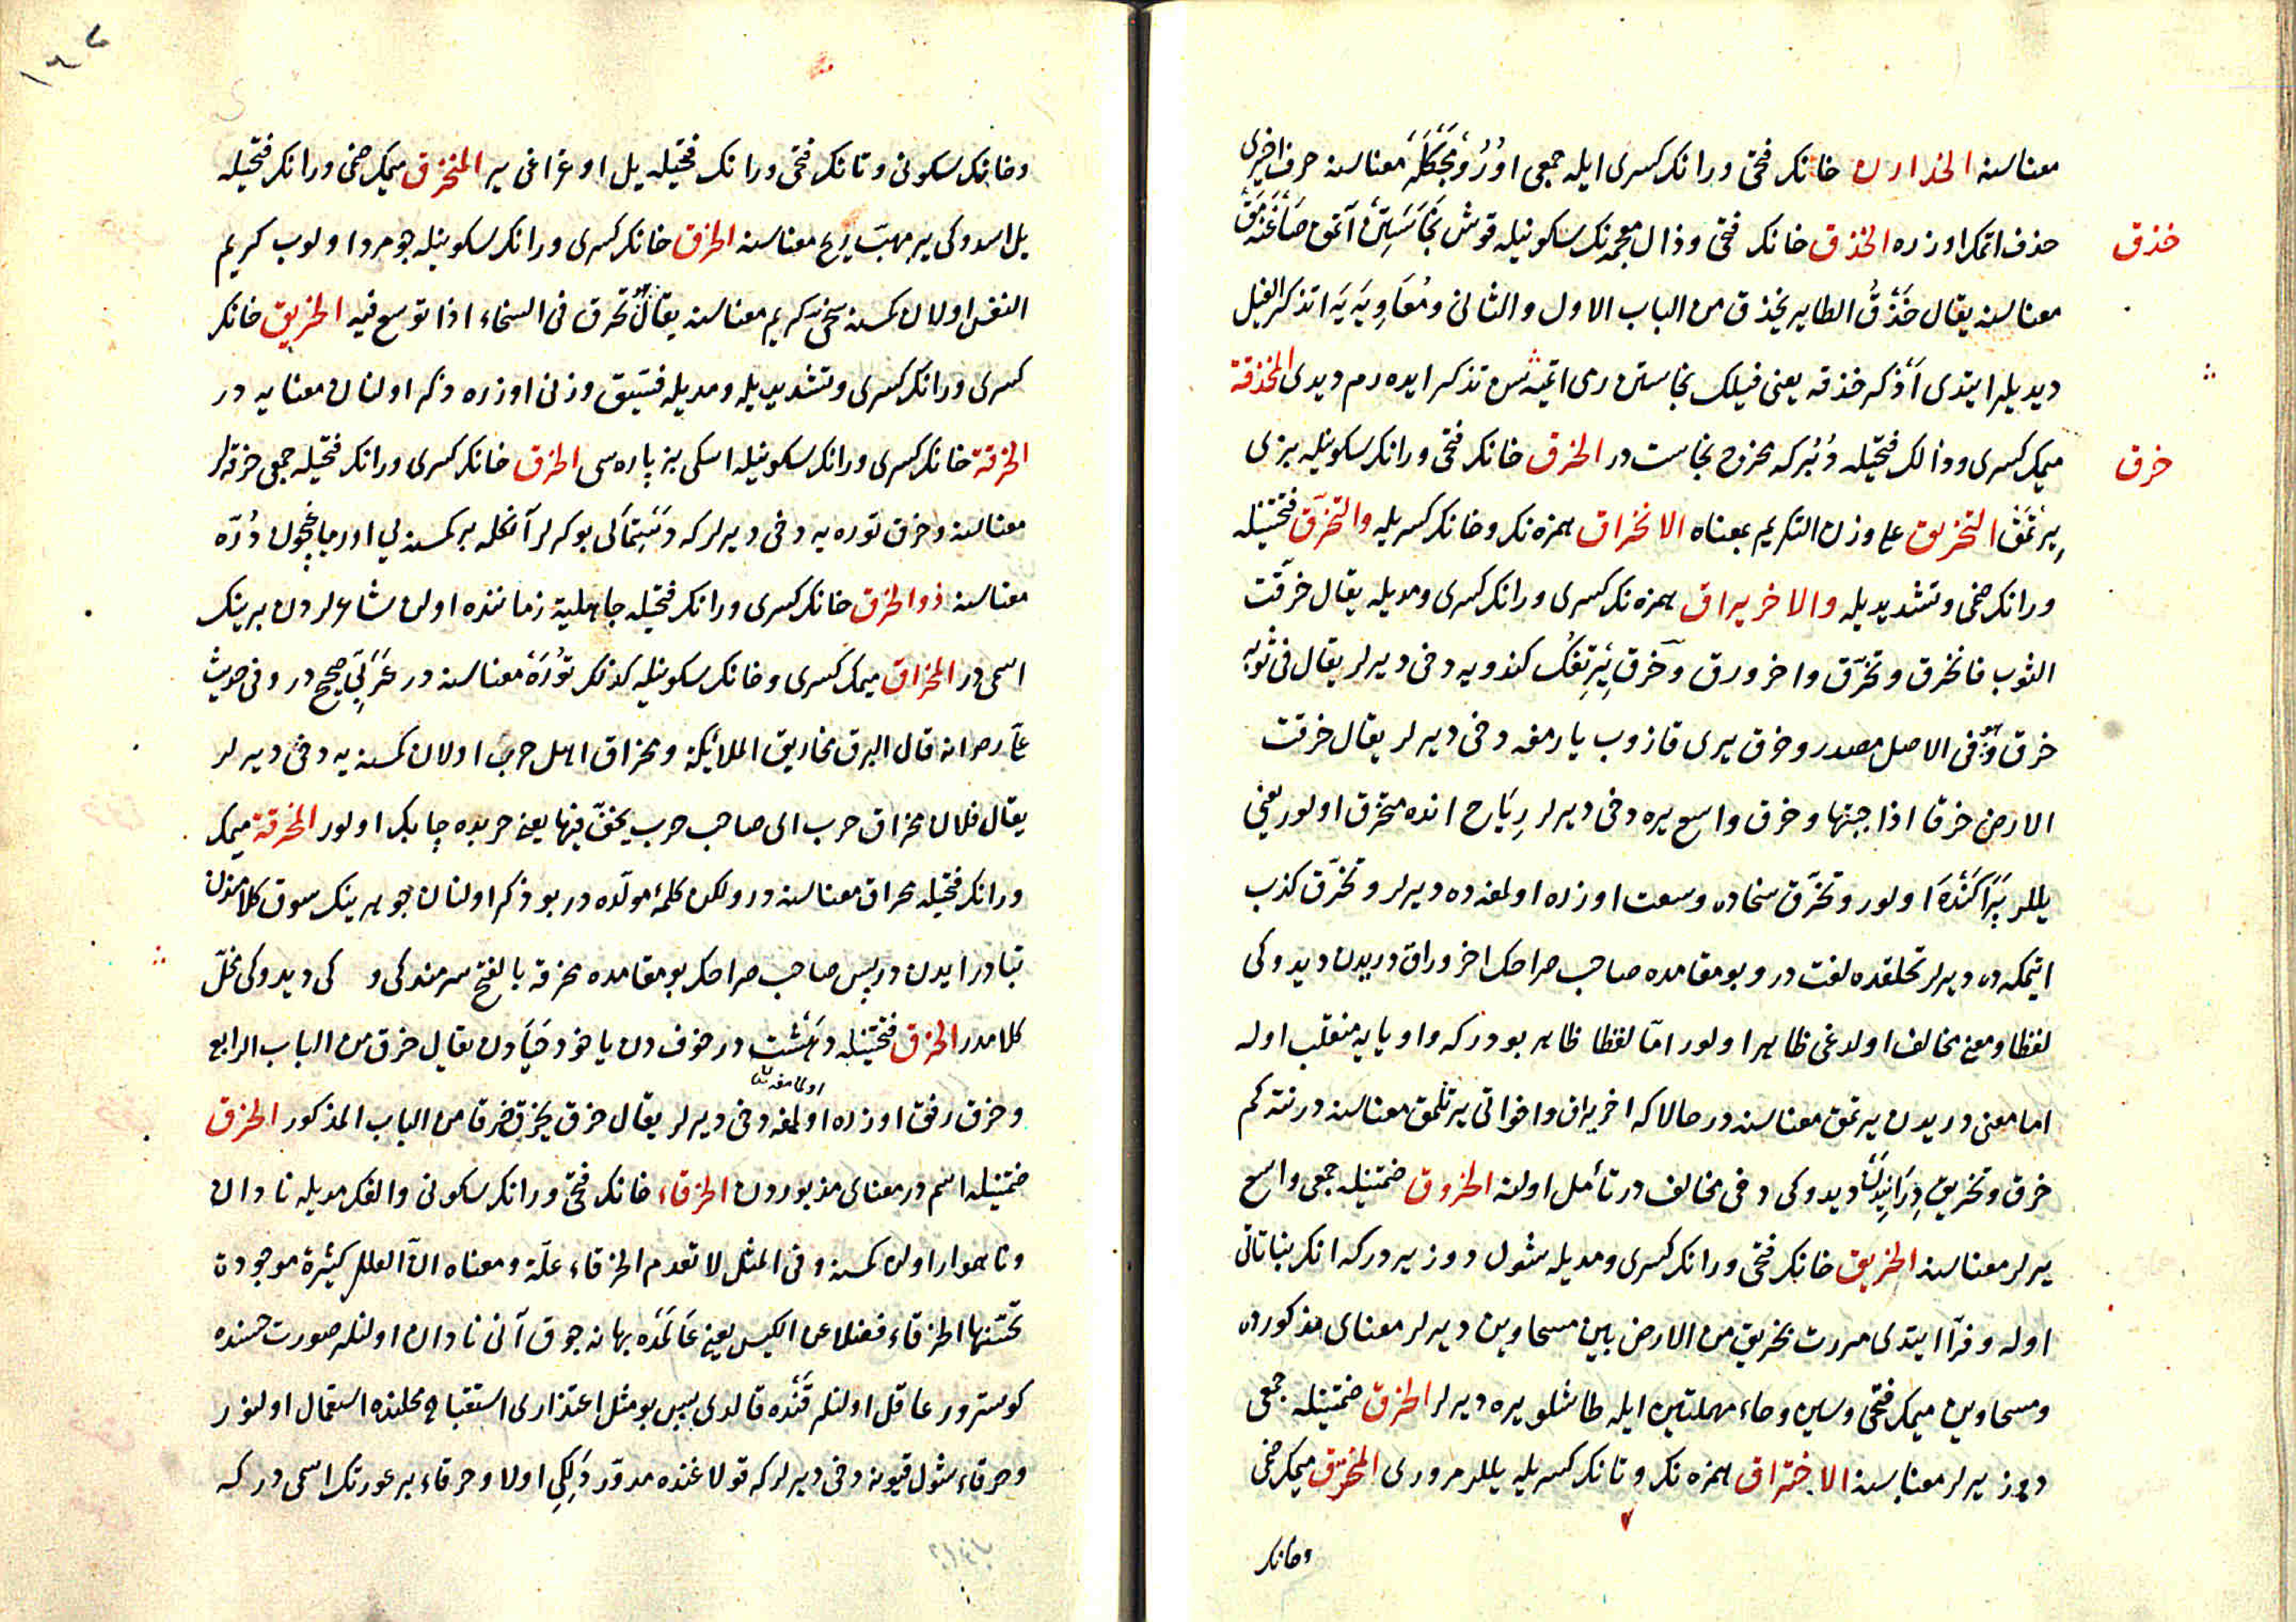 معناسنه الخدارن خانك فتحى ورانك كسرى ايله جمعى اورومجكله معناسنه حرف اخيرى
خذق
حذف اتمك اوزره الخذق خانك فتحى وذال معجمه نك سكونيله قوش نجاستين آتمق
معناسنه يقال خذق الطاير يخذق من الباب الاول والثانى ومعاويه يه اتذكر الفيل
ديديلر ايتدى اذكر خذقه يعنى فيلك نجاستن دى اتميه سن تذكر ايده رم ديدى المخذقة
خرق
ميمك كسرى وذالك فتحيله دبر كه مخرج نجاست در الخرق خانك فتحى ورانك سكونيله بزى
يرتمق التخريق على وزن التكريم بمعناه الانخراق همزه نك وخانك كسريله والتخرق فتحتينله
ورانك ضمى وتشديديله والاخريراق همزه نك كسرى ورانك كسرى ومديله يقال خرقت
الثوب فانخرق وتخرق واخرورق وخرق يرتغك كندويه دخى ديرلر يقال فى ثوبه
خرق وهو فى الاصل مصدر وخرق يرى قازوب يارمغه دخى ديرلر يقال خرقت
الارض خرقا اذا جبتها وخرق واسع يره دخى ديرلر رياح انده متخرق اولور يعنى
يللر پراكنده اولور وتخرق سخاده وسعت اوزره اولمغه ده ديرلر وتخرق كذب
ايتمكه ده ديرلر تخلقده لغت در وبو مقامده صاحب صراحك اخروراق دريدن ديدوكى
لفظا ومعنى مخالف اولدغى ظاهر اولور اما لفظا ظاهر بودر كه واو يايه منقلب اوله
اما معنى دريدن يرتمق معناسنه در حالا كه اخريراق واخواتى يرتلمق معناسنه در نته كم
خرق وتخريق درانيدن ديدوكى دخى مخالف در تأمل اولنه الخروق ضمتينله جمعى واسع
يرلر معناسنه الخريق خانك فتحى ورانك كسرى ومديله شول دوز يردر كه انك بناتاتى
اوله وفرآ ايتدى مررت بخريق من الارض بين مسحاوين ديرلر معناى مذكورده
ومسحاوين ميمك فتحى وسين وحاء مهملتين ايله طاشلو يره ديرلر الخرق ضمتينله جمعى
دوز يرلر معناسنه الاختراق همزه نك وتانك كسريله يللر مرورى المخترق ميمك ضمى
وخانك
وخانك سكونى وتانك فتحى ورانك فتحيله يل اوغراغى ير المنخرق ميمك ضمى ورانك فتحيله
يل اسدوكى ير مهب ريح معناسنه الخرق خانك كسرى ورانك سكونيله جومرد اولوب كريم
النفس اولان كمسنه سخى كريم معناسنه يقال هو تخرق فى السخاء اذا توسع فيه الخريق خانك
كسرى ورانك كسرى وتشديديله ومديله فسيق وزنى اوزره ذكر اولنان معنايه در
الخرقة خانك كسرى ورانك سكونيله اسكى بز پاره سى الخرق خانك كسرى ورانك فتحيله جمعى خرقه لر
معناسنه وخرق توره يه دخى ديرلر كه دستمالى بوكرلر آنكله بر كمسنه يى اوررلر چون دره
معناسنه ذو الخرق خانك كسرى ورانك فتحيله جاهلية زماننده اولن شاعرلردن برينك
اسمى در المخراق ميمك كسرى وخانك سكونيله كذلك توره معناسنه در عربى صحيح در وفى حديث
على رض انه قال البرق مخاريق الملائكة ومخراق اهل حرب اولان كمسنه يه دخى ديرلر
يقال فلان مخراق حرب اى صاحب حرب يخف فيها يعنى حربده چابك اولور المخرقة ميمك
ورانك فتحيله مخراق معناسنه در ولكن كلمۀ مولده در بو ذكر اولنان جوهرينك سوق كلامندن
تبادر ايدن در پس صاحب صراحك بو مقامده مخرقه بالفتح سرمندكى و كى ديدوكى محل
كلامدر الخرق فتحتينله دهشت در خوفدن يا خود حيادن يقال خرق من الباب الرابع
وخرق رفق اوزره اولمامغه دخى ديرلر يقال خرق يخرق خرقا من الباب المذكور الخرق
ضمتينله اسم در معناى مزبوردن الخرقاء خانك فتحى ورانك سكونى والفك مديله نادان
وناهموار اولن كمسنه وفى المثل لا تعدم الخرقاء علة ومعناه ان العلل كثيرة موجودة
تحسنها الخرقاء فضلا عن الكيس يعنى عالمده بهانه چوق آنى نادان اولنلر صورت حسنده
كوسترور عاقل اولنلر قنده قالدى پس بو مثل اعتذارى استقباح محلنده استعمال اولنور
وخرقاء شول قيونه دخى ديرلر كه قولاغنده مدور دلك اولا وخرقاء بر عورتك اسمى در كه